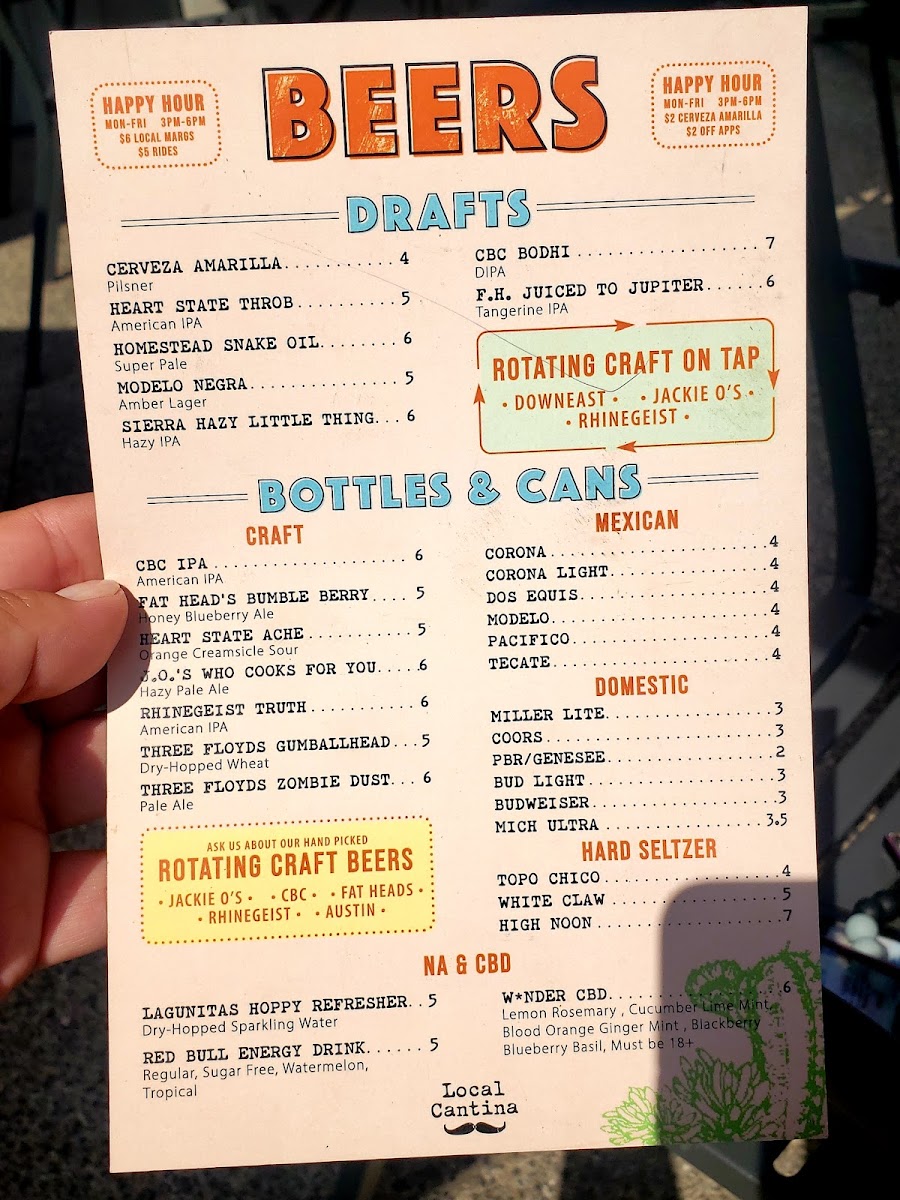 BEERS
HAPPY HOUR
MON-FRI 3PM-6PM
$6 LOCAL MARGS
$5 RIDES
HAPPY HOUR
MON-FRI 3PM-6PM
$2 CERVEZA AMARILLA
$2 OFF APPS
DRAFTS
CERVEZA AMARILLA........... 4
Pilsner
HEART STATE THROB.......... 5
American IPA
HOMESTEAD SNAKE OIL........ 6
Super Pale
MODELO NEGRA............... 5
Amber Lager
SIERRA HAZY LITTLE THING... 6
Hazy IPA
CBC BODHI .................. 7
DIPA
F.H. JUICED TO JUPITER......6
Tangerine IPA
ROTATING CRAFT ON TAP
• DOWNEAST • • JACKIE O'S •
• RHINEGEIST •
BOTTLES & CANS
CRAFT
CBC IPA ................... 6
American IPA
FAT HEAD'S BUMBLE BERRY.... 5
Honey Blueberry Ale
HEART STATE ACHE .......... 5
Orange Creamsicle Sour
J.O.'S WHO COOKS FOR YOU.....6
Hazy Pale Ale
RHINEGEIST TRUTH ........... 6
American IPA
THREE FLOYDS GUMBALLHEAD... 5
Dry-Hopped Wheat
THREE FLOYDS ZOMBIE DUST... 6
Pale Ale
ASK US ABOUT OUR HAND PICKED
ROTATING CRAFT BEERS
• JACKIE O'S • • CBC • • FAT HEADS •
• RHINEGEIST • • AUSTIN •
MEXICAN
CORONA......................4
CORONA LIGHT................4
DOS EQUIS...................4
MODELO......................4
PACIFICO....................4
TECATE......................4
DOMESTIC
MILLER LITE.................3
COORS.......................3
PBR/GENESEE.................2
BUD LIGHT...................3
BUDWEISER...................3
MICH ULTRA ................3.5
HARD SELTZER
TOPO CHICO..................4
WHITE CLAW .................5
HIGH NOON ..................7
NA & CBD
LAGUNITAS HOPPY REFRESHER.. 5
Dry-Hopped Sparkling Water
RED BULL ENERGY DRINK...... 5
Regular, Sugar Free, Watermelon,
Tropical
W*NDER CBD..................6
Lemon Rosemary , Cucumber Lime Mint,
Blood Orange Ginger Mint , Blackberry
Blueberry Basil, Must be 18+
Local
Cantina